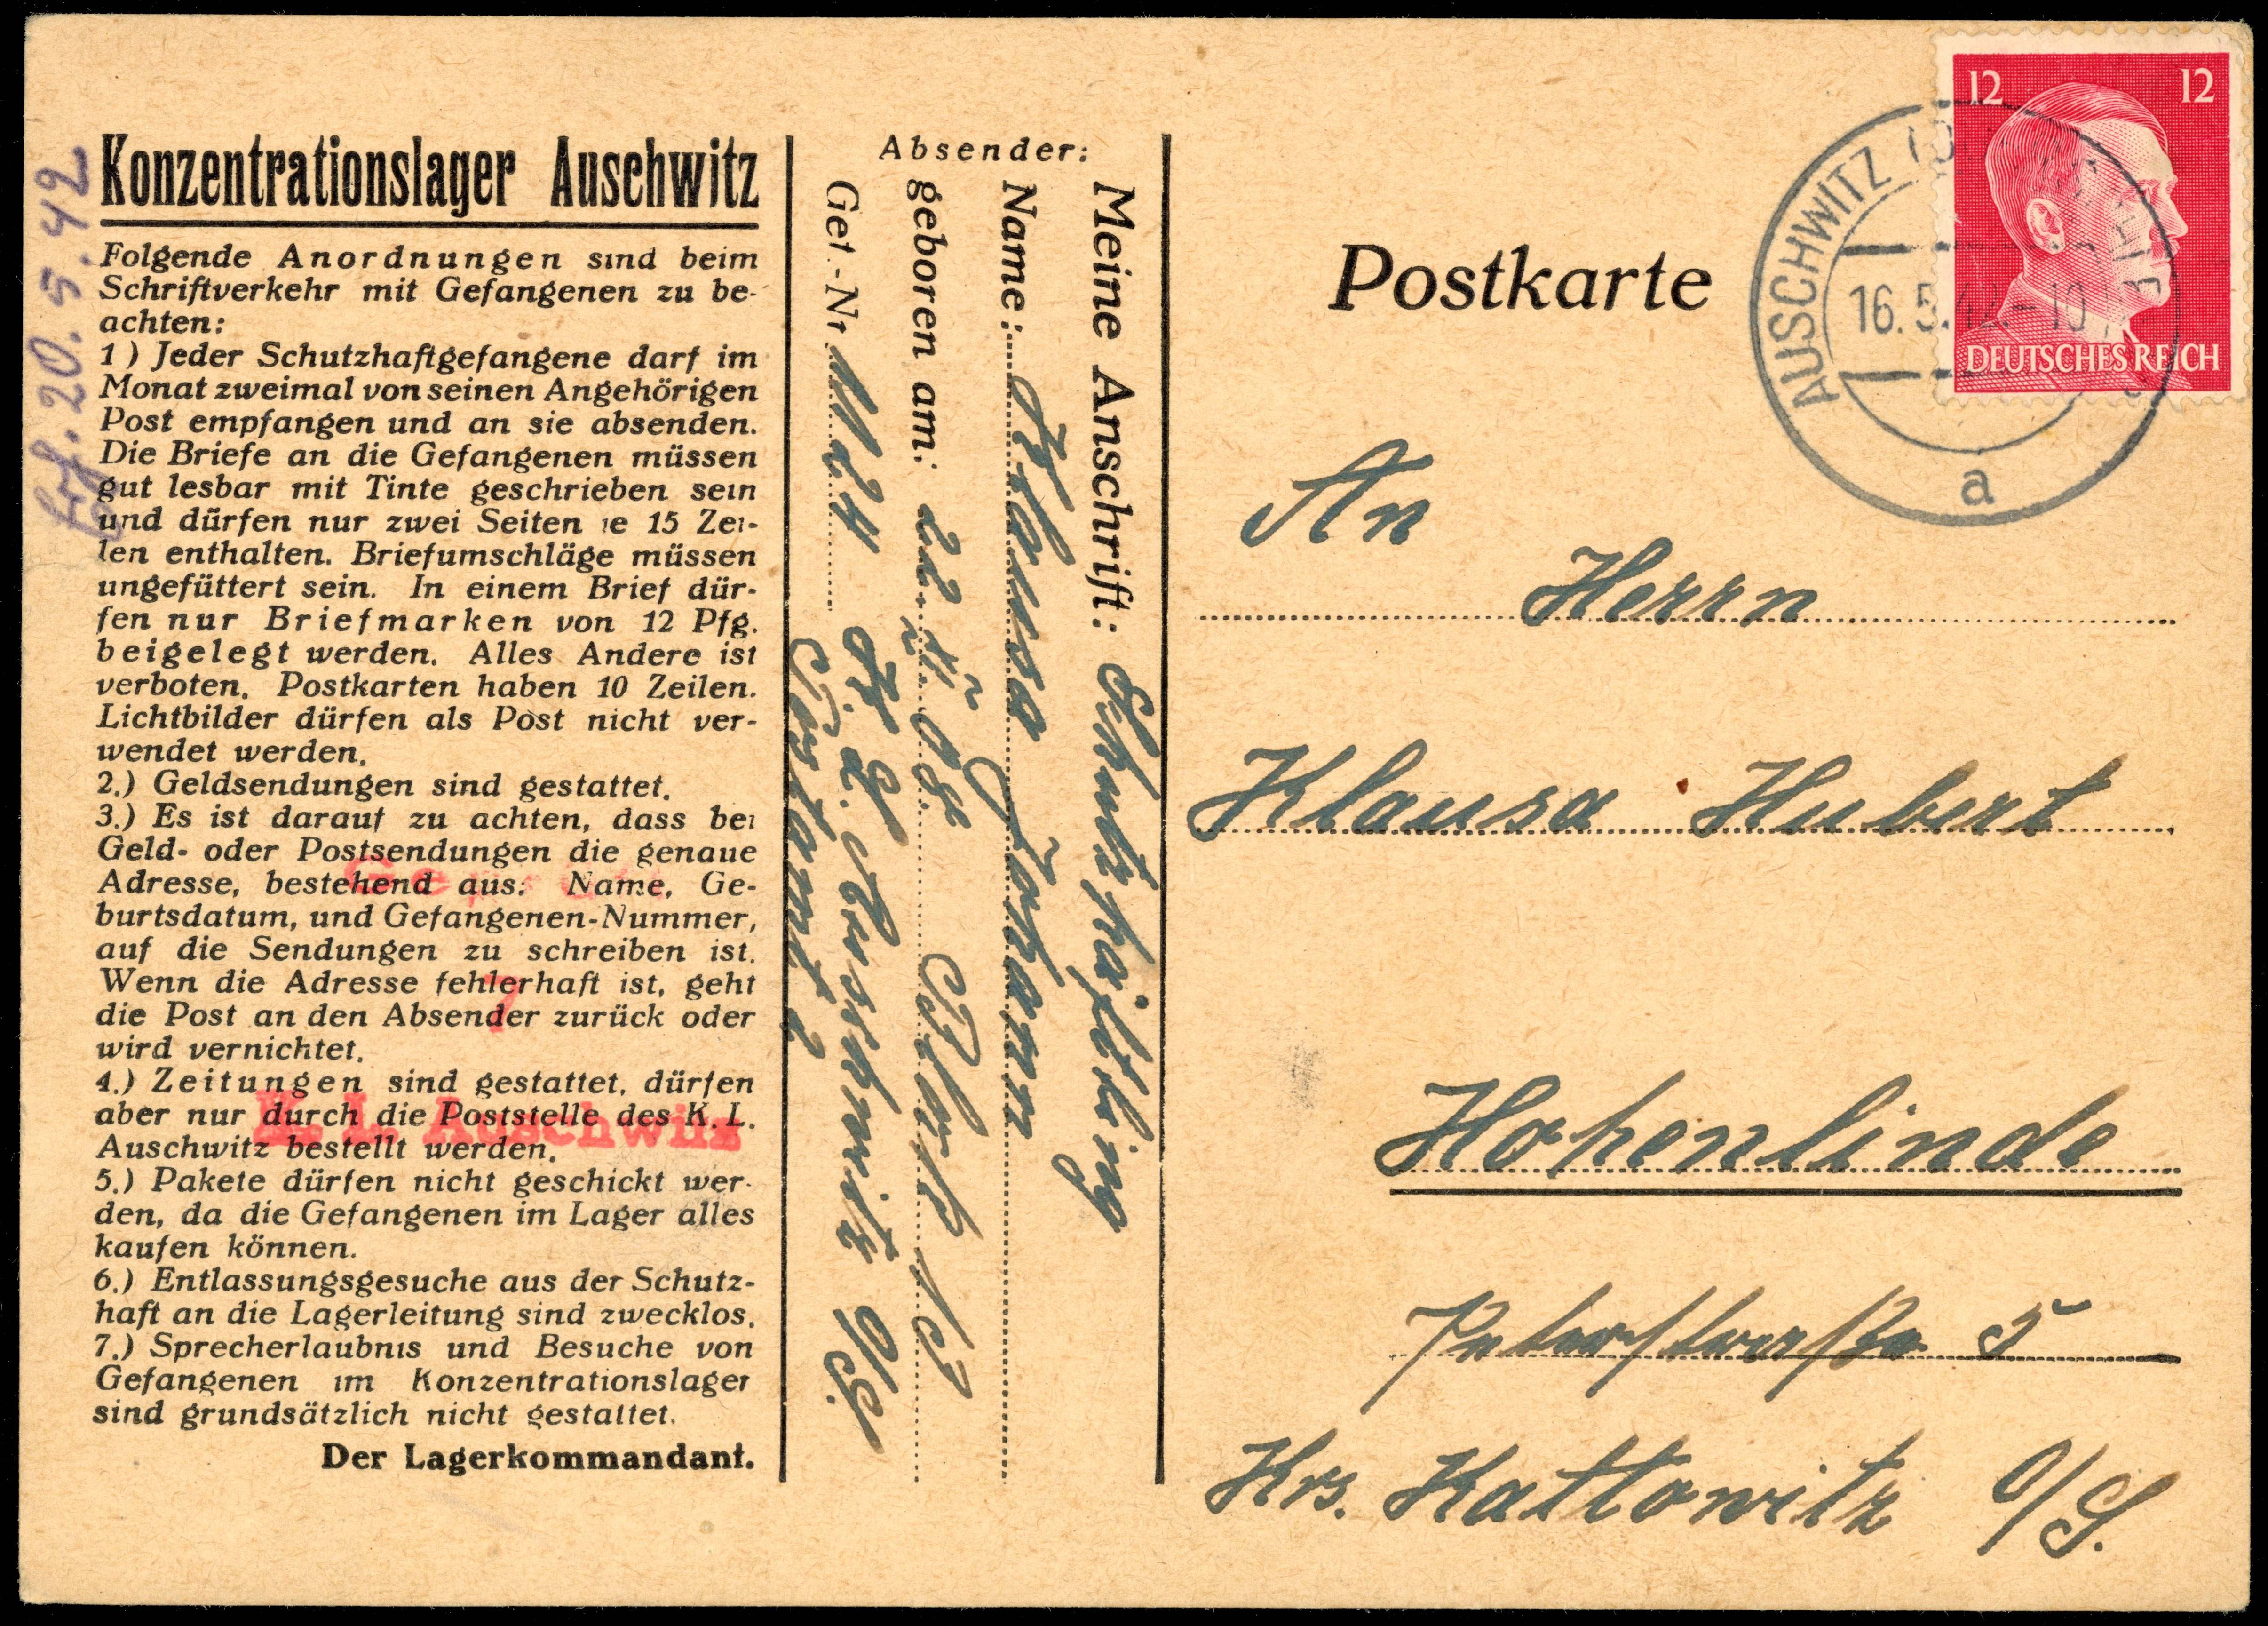 Konzentrationslager Auschwitz
Folgende Anordnungen sind beim
Schriftverkehr mit Gefangenen zu be-
achten:
1) Jeder Schutzhaftgefangene darf im
Monat zweimal von seinen Angehörigen
Post empfangen und an sie absenden.
Die Briefe an die Gefangenen müssen
gut lesbar mit Tinte geschrieben sein
und dürfen nur zwei Seiten je 15 Zei-
len enthalten. Briefumschläge müssen
ungefüttert sein. In einem Brief dür-
fen nur Briefmarken von 12 Pfg.
beigelegt werden. Alles Andere ist
verboten. Postkarten haben 10 Zeilen.
Lichtbilder dürfen als Post nicht ver-
wendet werden.
2.) Geldsendungen sind gestattet.
3.) Es ist darauf zu achten, dass bei
Geld- oder Postsendungen die genaue
Adresse, bestehend aus: Name, Ge-
burtsdatum, und Gefangenen-Nummer,
auf die Sendungen zu schreiben ist.
Wenn die Adresse fehlerhaft ist, geht
die Post an den Absender zurück oder
wird vernichtet.
4.) Zeitungen sind gestattet, dürfen
aber nur durch die Poststelle des K. L.
Auschwitz bestellt werden.
5.) Pakete dürfen nicht geschickt wer-
den, da die Gefangenen im Lager alles
kaufen können.
6.) Entlassungsgesuche aus der Schutz-
haft an die Lagerleitung sind zwecklos.
7.) Sprecherlaubnis und Besuche von
Gefangenen im Konzentrationslager
sind grundsätzlich nicht gestattet.
Der Lagerkommandant.
20.5.42
7
K. L. Auschwitz
Absender:
Meine Anschrift: Schutzhäftling
Name: Klausa Johann
geboren am: 22. II. 08. Block
Gef.-Nr. 11124
K. L. Auschwitz O/S.
Postamt 2
Postkarte
12 12
DEUTSCHES REICH
AUSCHWITZ
16.5.42.-10
a
An
Herrn
Klausa Hubert
Hohenlinde
5
Krs. Kattowitz O/S.